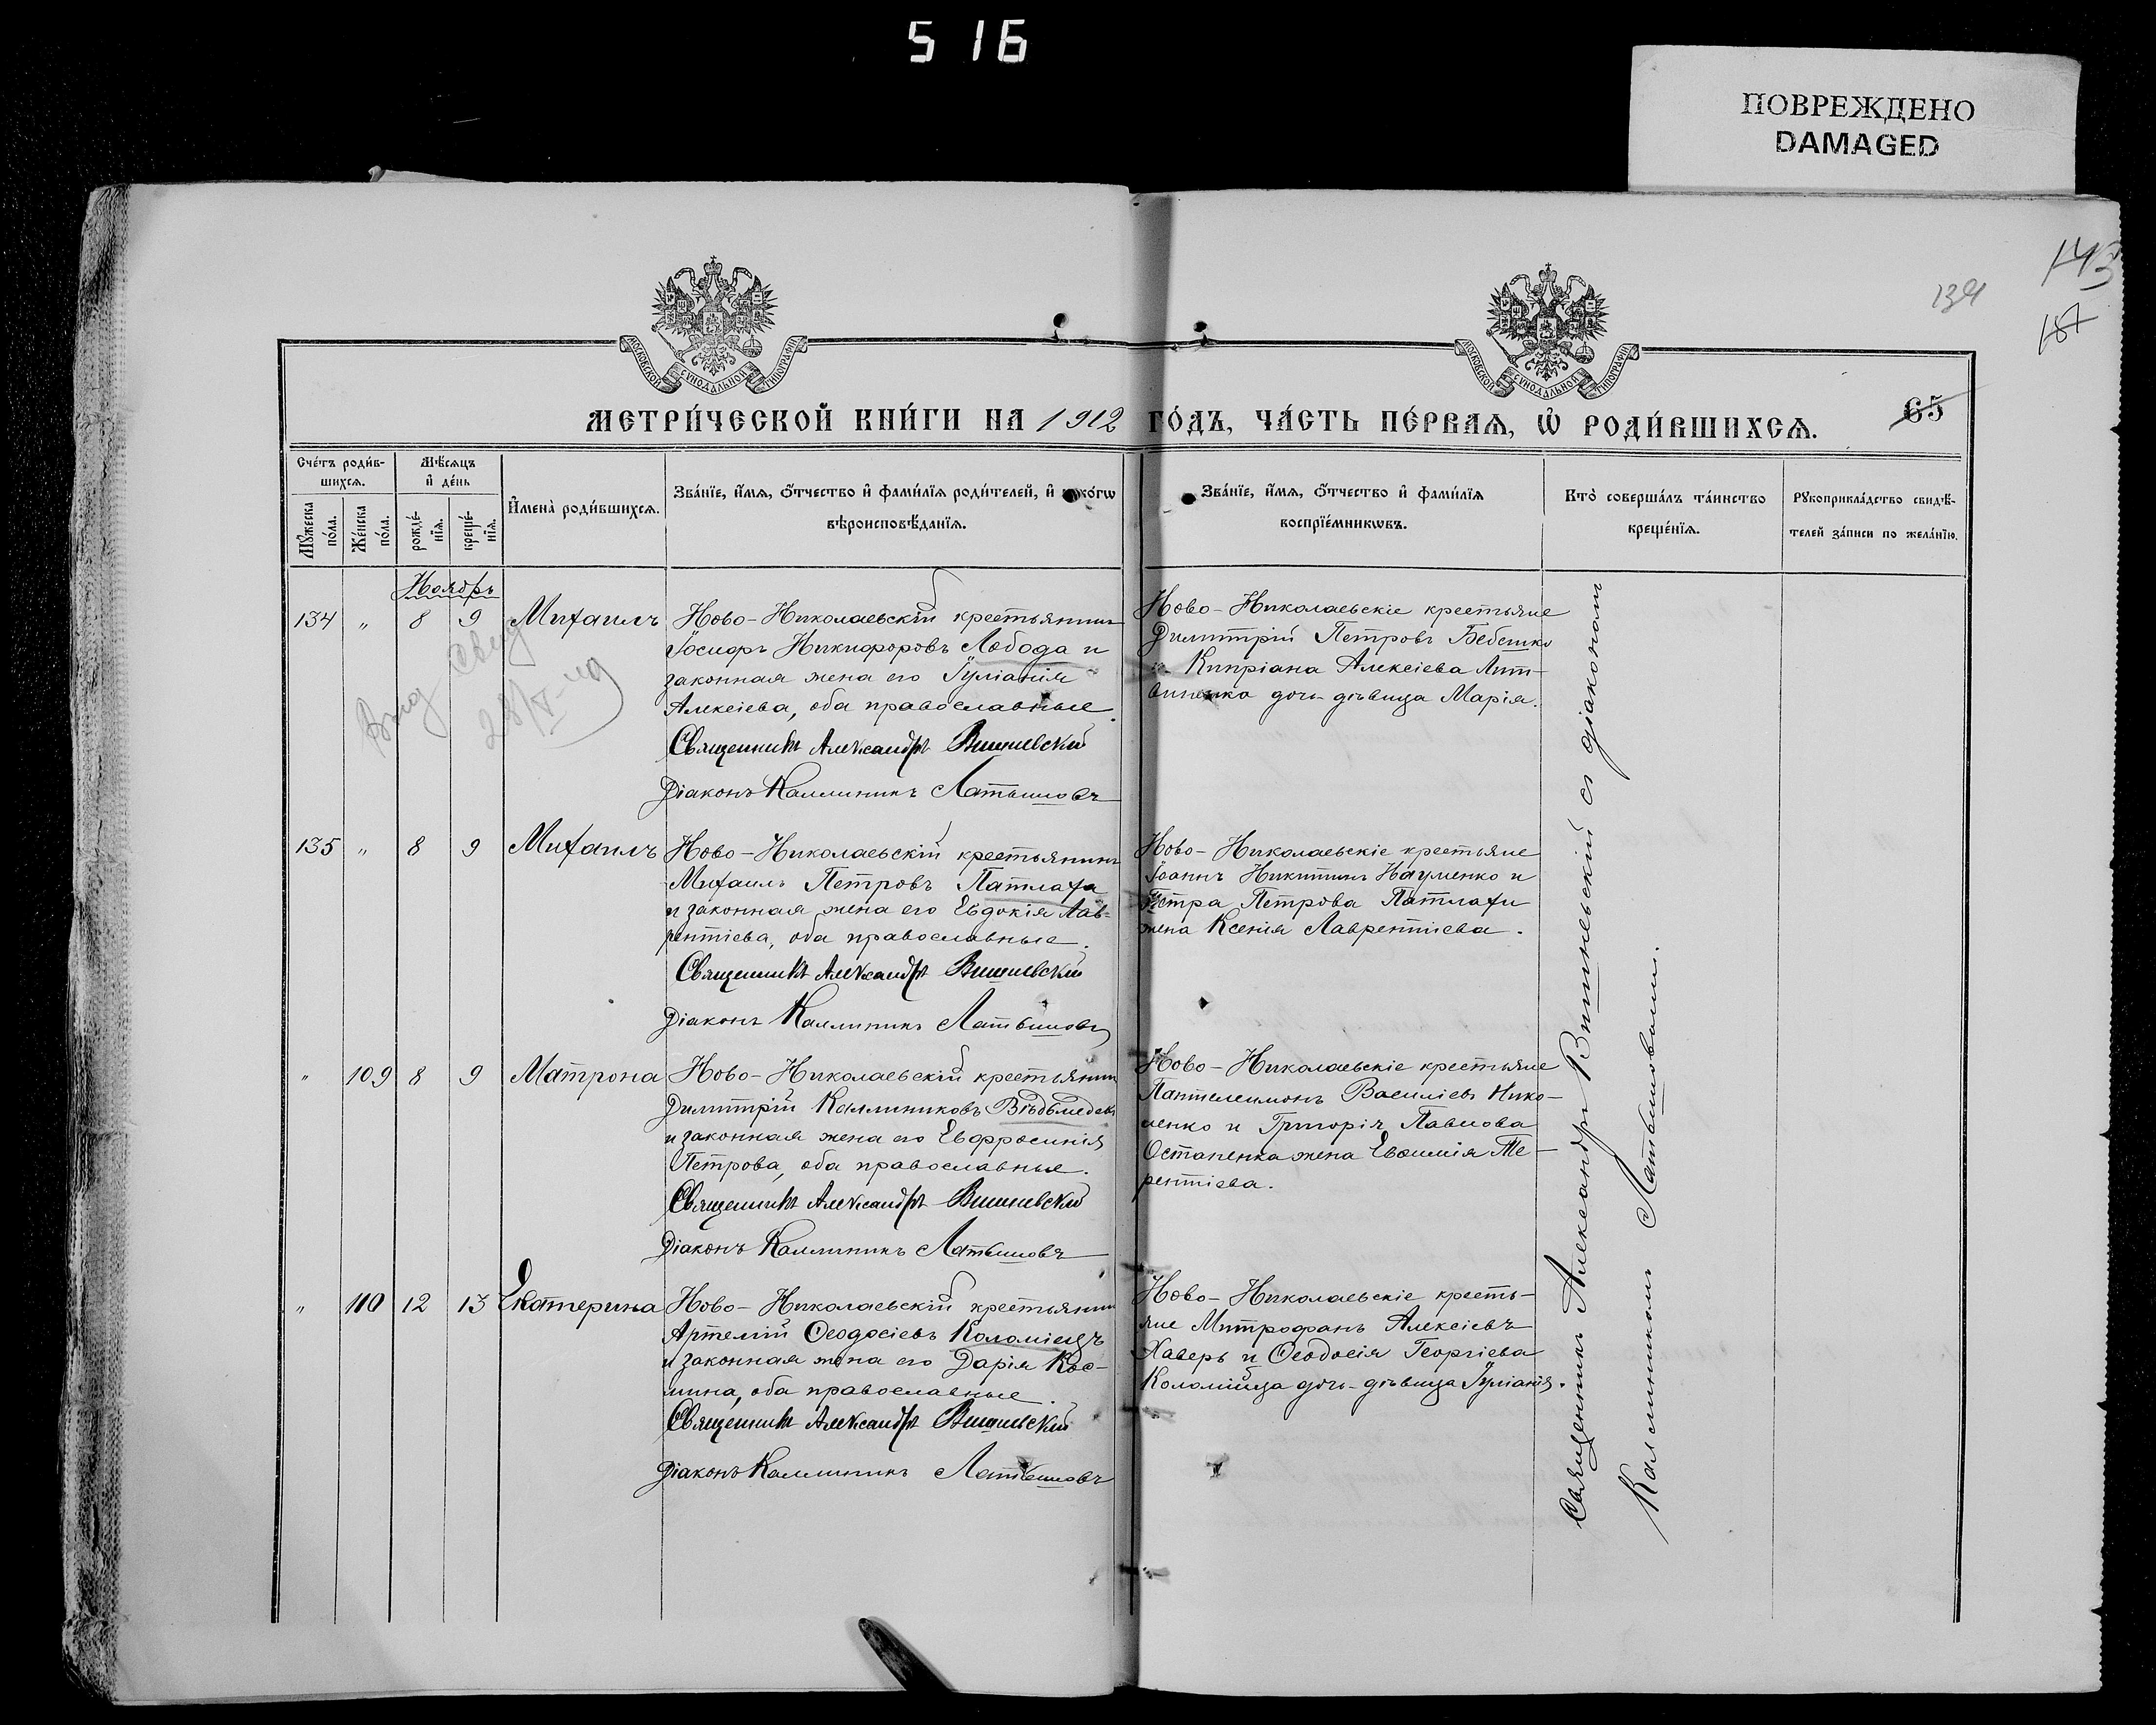 516
ПОВРЕЖДЕНО
DAMAGED
143
134
МОСКОВСКОЙ СѴНОДАЛЬНОЙ ТИПОГРАФІИ
МОСКОВСКОЙ СѴНОДАЛЬНОЙ ТИПОГРАФІИ
МЕТРИ́ЧЕСКОЙ КНИ́ГИ НА 1912 ГО́ДЪ, ЧА́СТЬ ПЕ́РВАѦ, Ѽ РОДИ́ВШИХСѦ.
65
Сче́тъ роди́в-
шихсѧ.
Мѣ́сѧцъ
и҆ де́нь
Мꙋ́жеска
по́ла.
Же́нска
по́ла.
рожде́-
нїѧ.
креще́-
нїѧ.
И҆мена̀ роди́вшихсѧ.
Зва́нїе, и҆́мѧ, ѻ҆́тчество и҆ фами́лїѧ роди́телей, и҆ како́гѡ
вѣроисповѣ́данїѧ.
Зва́нїе, и҆́мѧ, ѻ҆́тчество и҆ фами́лїѧ
воспрїе́мникѡвъ.
Кто̀ соверша́лъ та́инство
креще́нїѧ.
Рꙋкоприкла́дство свидѣ́-
телей за́писи по жела́нїю.
Ноябрь
134 „ 8 9 Михаилъ
Ново-Николаевскій крестьянинъ
Іосифъ Никифоровъ Лобода и
законная жена его Іуліанія
Алексіева, оба православные.
Священникъ Александръ Вишневскій
Діаконъ Каллиникъ Латышовъ
Ново-Николаевскіе крестьяне
Димитрій Петровъ Бебешко
и Кипріана Алексіева Лит-
виненко дочь-дѣвица Марія.
28/X-19
135 „ 8 9 Михаилъ
Ново-Николаевскій крестьянинъ
Михаилъ Петровъ Патлаха
и законная жена его Евдокія Лав-
рентіева, оба православные.
Священникъ Александръ Вишневскій
Діаконъ Каллиникъ Латышовъ
Ново-Николаевскіе крестьяне
Іоаннъ Никитинъ Науменко и
Петра Петрова Патлахи
жена Ксенія Лаврентіева.
„ 109 8 9 Матрона
Ново-Николаевскій крестьянинъ
Димитрій Каллиниковъ Вѣдьмедевъ
и законная жена его Евфросинія
Петрова, оба православные.
Священникъ Александръ Вишневскій
Діаконъ Каллиникъ Латышовъ
Ново-Николаевскіе крестьяне
Пантелеимонъ Василіевъ Нико-
ленко и Григорія Павлова
Остапенка жена Евѳимія Те-
рентіева.
„ 110 12 13 Екатерина
Ново-Николаевскій крестьянинъ
Артемій Ѳеодосіевъ Коломіецъ
и законная жена его Дарія Кос-
мина, оба православные.
Священникъ Александръ Вишневскій
Діаконъ Каллиникъ Латышовъ
Ново-Николаевскіе кресть-
яне Митрофанъ Алексіевъ
Хаверь и Ѳеодосія Георгіева
Коломійца дочь-дѣвица Іуліанія.
Священникъ Александръ Вишневскій съ діакономъ
Каллиникомъ Латышовымъ.